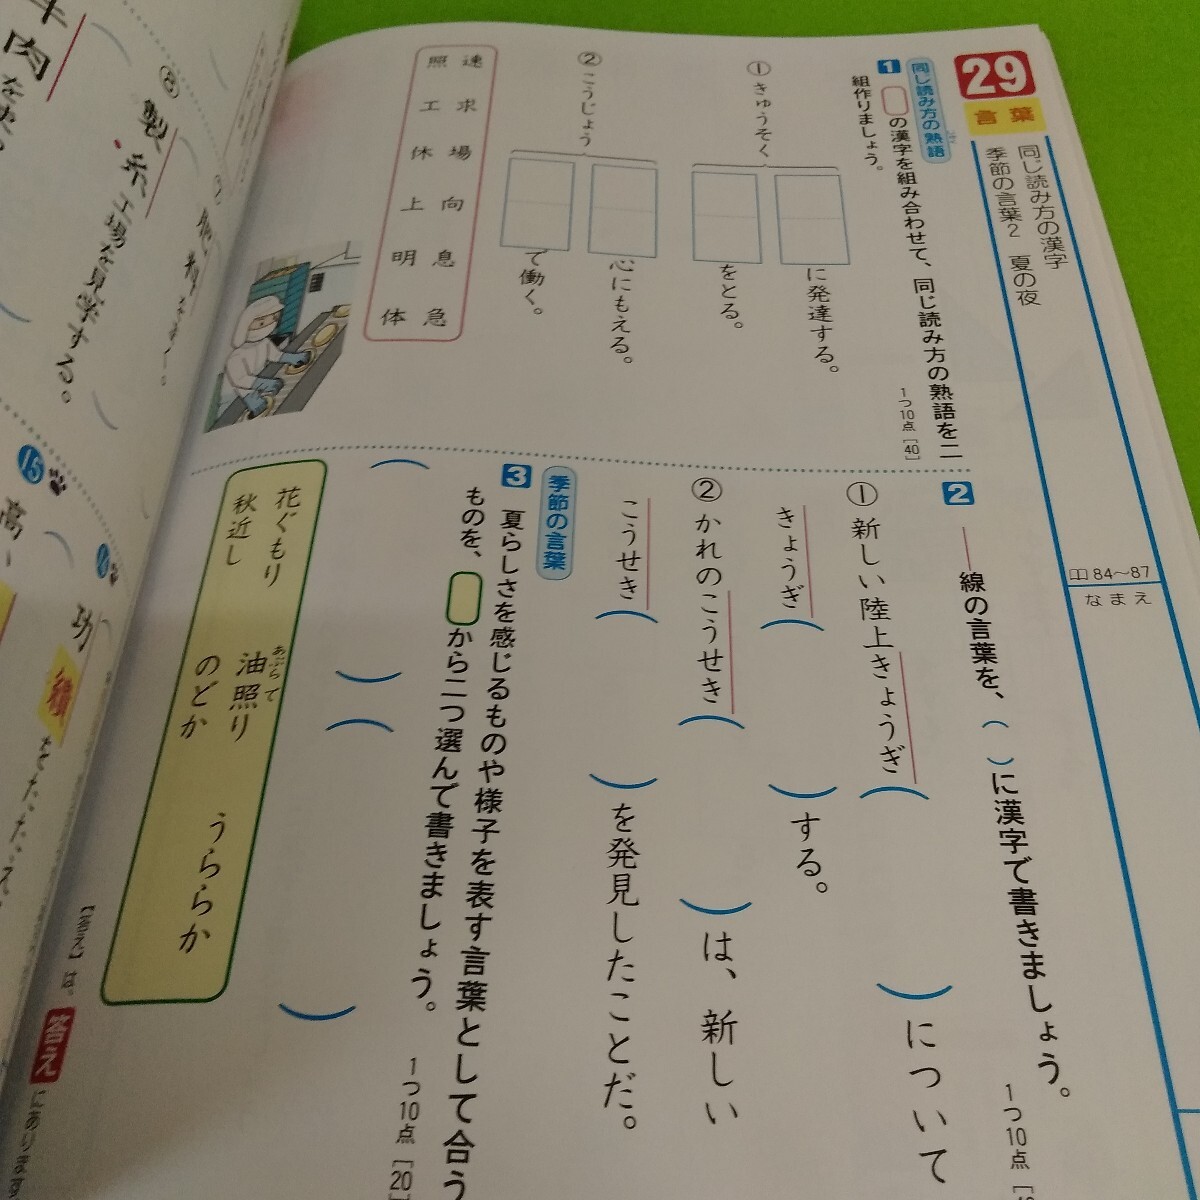 29
言葉
同じ読み方の漢字
季節の言葉2 夏の夜
84〜87
なまえ
同じ読み方の熟語
1 の漢字を組み合わせて、同じ読み方の熟語を二
組作りましょう。
1つ10点［40］
① きゅうそく
に発達する。
をとる。
② こうじょう
心にもえる。
で働く。
速 求 場 向 息 急
照 工 休 上 明 体
2 ――線の言葉を、（ ）に漢字で書きましょう。
1つ10点
① 新しい陸上きょうぎ（ ）について
きょうぎ（ ）する。
② かれのこうせき（ ）は、新しい
こうせき（ ）を発見したことだ。
季節の言葉
3 夏らしさを感じるものや様子を表す言葉として合う
ものを、 から二つ選んで書きましょう。
1つ10点［20］
（ ）（ ）
花ぐもり 油照り うららか
あぶらて
秋近し のどか
【答え】は。
答え
にあります
牛肉を
⑧ 製糸工場を見学する。
15
高い
16
功績をたたえ